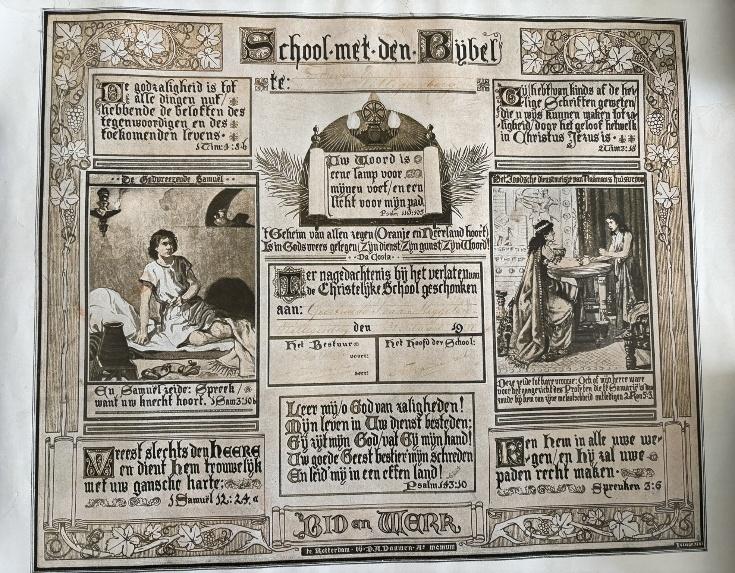 School·met·den·Bybel
te:
De godzaligheid is tot
alle dingen nut/
hebbende de beloften des
tegenwoordigen en des
toekomenden levens·
1 Tim: 4:8b
Gij hebt van kinds af de hei-
lige Schriften geweten/
die u wijs kunnen maken tot za-
ligheid/door het geloof hetwelk
in Christus Jezus is·
2 Tim: 3:15
Uw Woord is
eene lamp voor
mijnen voet/en een
licht voor mijn pad.
Psalm 119:105
't Geheim van allen zegen (Oranje en Neerland hoort)
Is in Gods vrees gelegen/Zijn dienst/Zijn gunst/Zijn Woord!
·Da Costa·
De Godvreezende Samuël
En Samuël zeide: Spreek/
want uw knecht hoort. 1 Sam 3:10b
Het Joodsche dienstmeisje van Naäman's huisvrouw
Deze zeide tot hare vrouw: Och of mijn heere ware
voor het aangezicht des Profeten die te Samaria is dan
zoude hij hem van zijne melaatschheid ontledigen 2 Kon 5:3
Ter nagedachtenis bij het verlaten van
de Christelijke School geschonken
aan:
den 19
Het Bestuur:
voorz:
secr:
Het Hoofd der School:
Leer mij/o God van zaligheden!
Mijn leven in Uw dienst besteden;
Gij zijt mijn God/vat Gij mijn hand!
Uw goede Geest bestier mijn schreden
En leid mij in een effen land!
Psalm 143:10
Vreest slechts den HEERE
en dient Hem trouwelijk
met uw gansche harte:
1 Samuël 12:24a
Ken Hem in alle uwe we-
gen/en hij zal uwe
paden recht maken·
Spreuken 3:6
BID en WERK
te Rotterdam · bij D.A. Daamen · Aº mcmvii